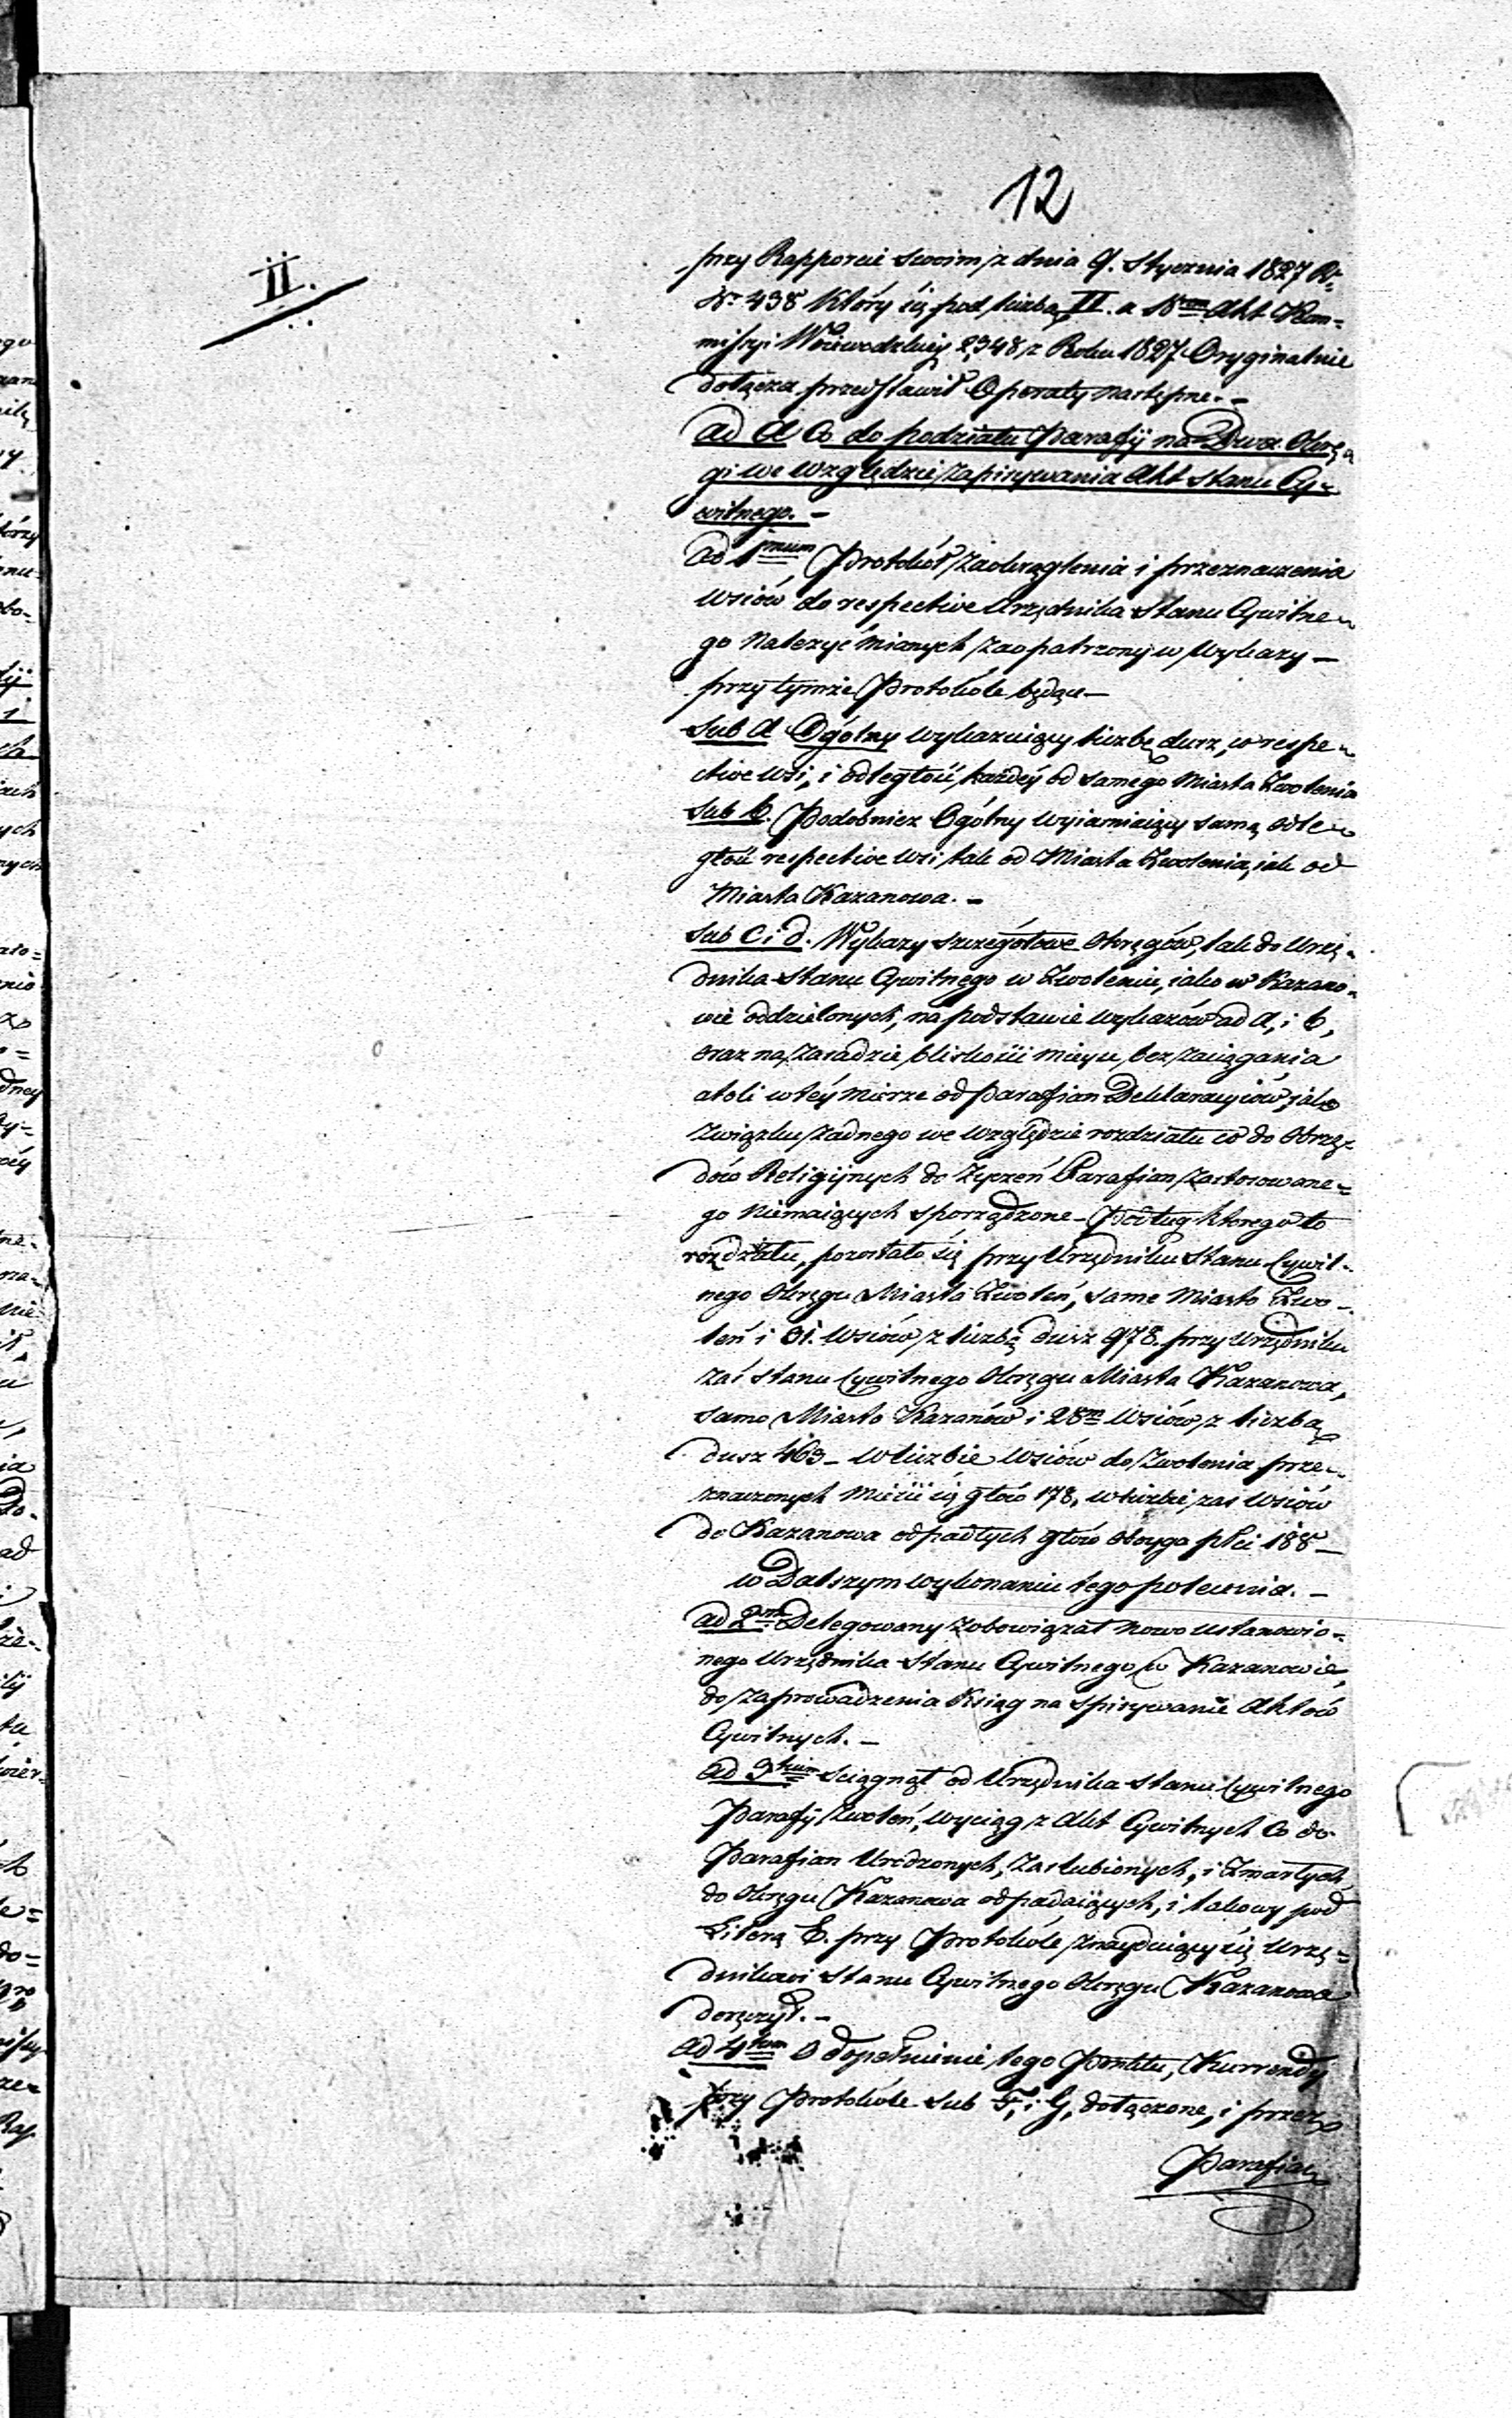 12
II.
przy Rapporcie swoim z dnia 9. Stycznia 1827 R.
Nr 438 Który się pod liczbą II. a Nrem Akt Kom=
missyi Woiewodzkiey 2,348 z Roku 1827 Oryginalnie
dołącza przedstawił Operaty następne. -
ad A Co do podziału Parafij na Dwa Okrę=
gi we względzie zapisywania Akt Stanu Cy=
wilnego. -
ad 1mum Protokół zaokrąglenia i przeznaczenia
wsiów do respective Urzędnika Stanu Cywilne=
go należyć mianych zaopatrzony w Wykazy -
przy tymże Protokóle będące -
Sub A Ogólny wykazuiący liczbę dusz, w respe=
ctive wsi, i odległość każdéy od samego Miasta Zwolenia
Sub b. Podobnież Ogólny wyiaśniaiący samą odle=
głość respective wsi tak od Miasta Zwolenia, iak od
Miasta Kazanowa. -
Sub C i d. Wykazy szczegółowe Okręgów, tak do Urzę=
dnika Stanu Cywilnego w Zwoleniu, iako w Kazano=
wie oddzielonych, na podstawie wykazów ad A, i b,
oraz na zasadzie bliskości mieysc, bez zaciągania
atoli w téy mierze od Parafian Deklaracyiów, jako
związku żadnego we względzie rozdziału co do Obrzę=
dów Religijnych do życzeń Parafian zastosowane=
go niemaiących sporządzone - Podług którego to
rozdziału, pozostało się przy Urzędniku Stanu Cywil=
nego Okręgu Miasta Zwoleń, same Miasto Zwo=
leń i 31. wsiów z liczbą dusz 978. przy Urzędniku
zaś Stanu Cywilnego Okręgu Miasta Kazanowa,
samo Miasto Kazanów i 28m wsiów, z liczbą
dusz 463 - w liczbie wsiów do Zwolenia prze=
znaczonych mieści się głów 178, w liczbie zaś wsiów
do Kazanowa odpadłych głów oboyga płci 188 -
w Dalszym wykonaniu tego polecenia. -
ad 2um Delegowany zobowiązał nowo ustanowio=
nego Urzędnika Stanu Cywilnego w Kazanowie,
do zaprowadzenia Ksiąg na spisywanie Aktów
Cywilnych. -
ad 3tium ściągnął od Urzędnika Stanu Cywilnego
Parafij Zwoleń, wyciąg z Akt Cywilnych Co do
Parafian Urodzonych, Zaślubionych, i Zmarłych
do Okręgu Kazanowa odpadaiących, i takowy pod
Literą E. przy Protokóle znayduiący się Urzę=
dnikowi Stanu Cywilnego Okręgu Kazanowa
doręczył. -
ad 4tum O dopełnienie tego Punktu, Kurrendy
przy Protokóle Sub F, i G, dołączone, i przez
Parafian